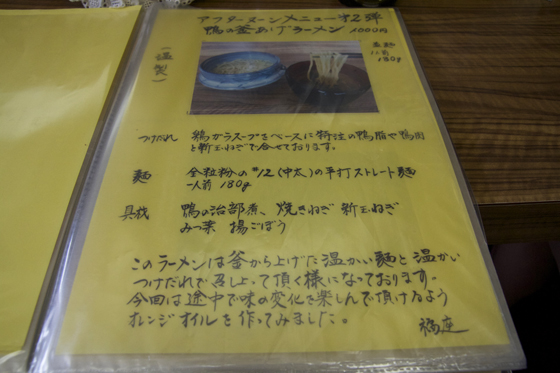 アフターヌーンメニュー才2弾
鴨の釜あげラーメン 1000円
(温製)
並麺
1人前
180g
つけだれ 鶏ガラスープをベースに特注の鴨脂や鴨肉
と新玉ねぎで合せております。
麺 全粒粉の#12(中太)の平打ストレート麺
一人前 180g
具材 鴨の治部煮、焼きねぎ 新玉ねぎ
みつ葉 揚ごぼう
このラーメンは釜から上げた温かい麺と温かい
つけだれで召し上って頂く様になっております。
今回は途中で味の変化を楽しんで頂けるよう
オレンジオイルを作ってみました。
福座